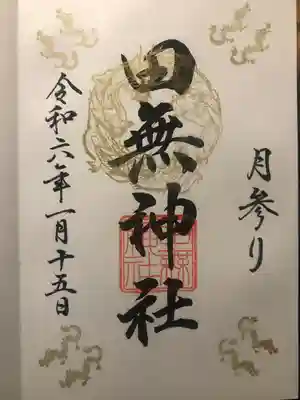 月参り
田無神社
田無神社
令和六年一月十五日